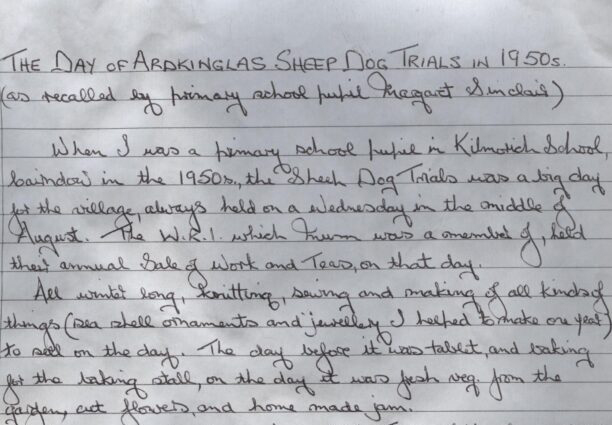 THE DAY OF ARDKINGLAS SHEEP DOG TRIALS IN 1950s.
(as recalled by primary school pupil Margaret Sinclair)
When I was a primary school pupil in Kilmorich School,
Cairndow in the 1950s, the Sheep Dog Trials was a big day
for the village, always held on a Wednesday in the middle of
August. The W.R.I. which Mum was a member of, held
their annual Sale of Work and Teas, on that day.
All winter long, knitting, sewing and making of all kinds of
things (sea shell ornaments and jewellery I helped to make one year)
to sell on the day. The day before it was tablet, and baking
for the baking stall, on the day it was fresh veg. from the
garden, cut flowers, and home made jam.